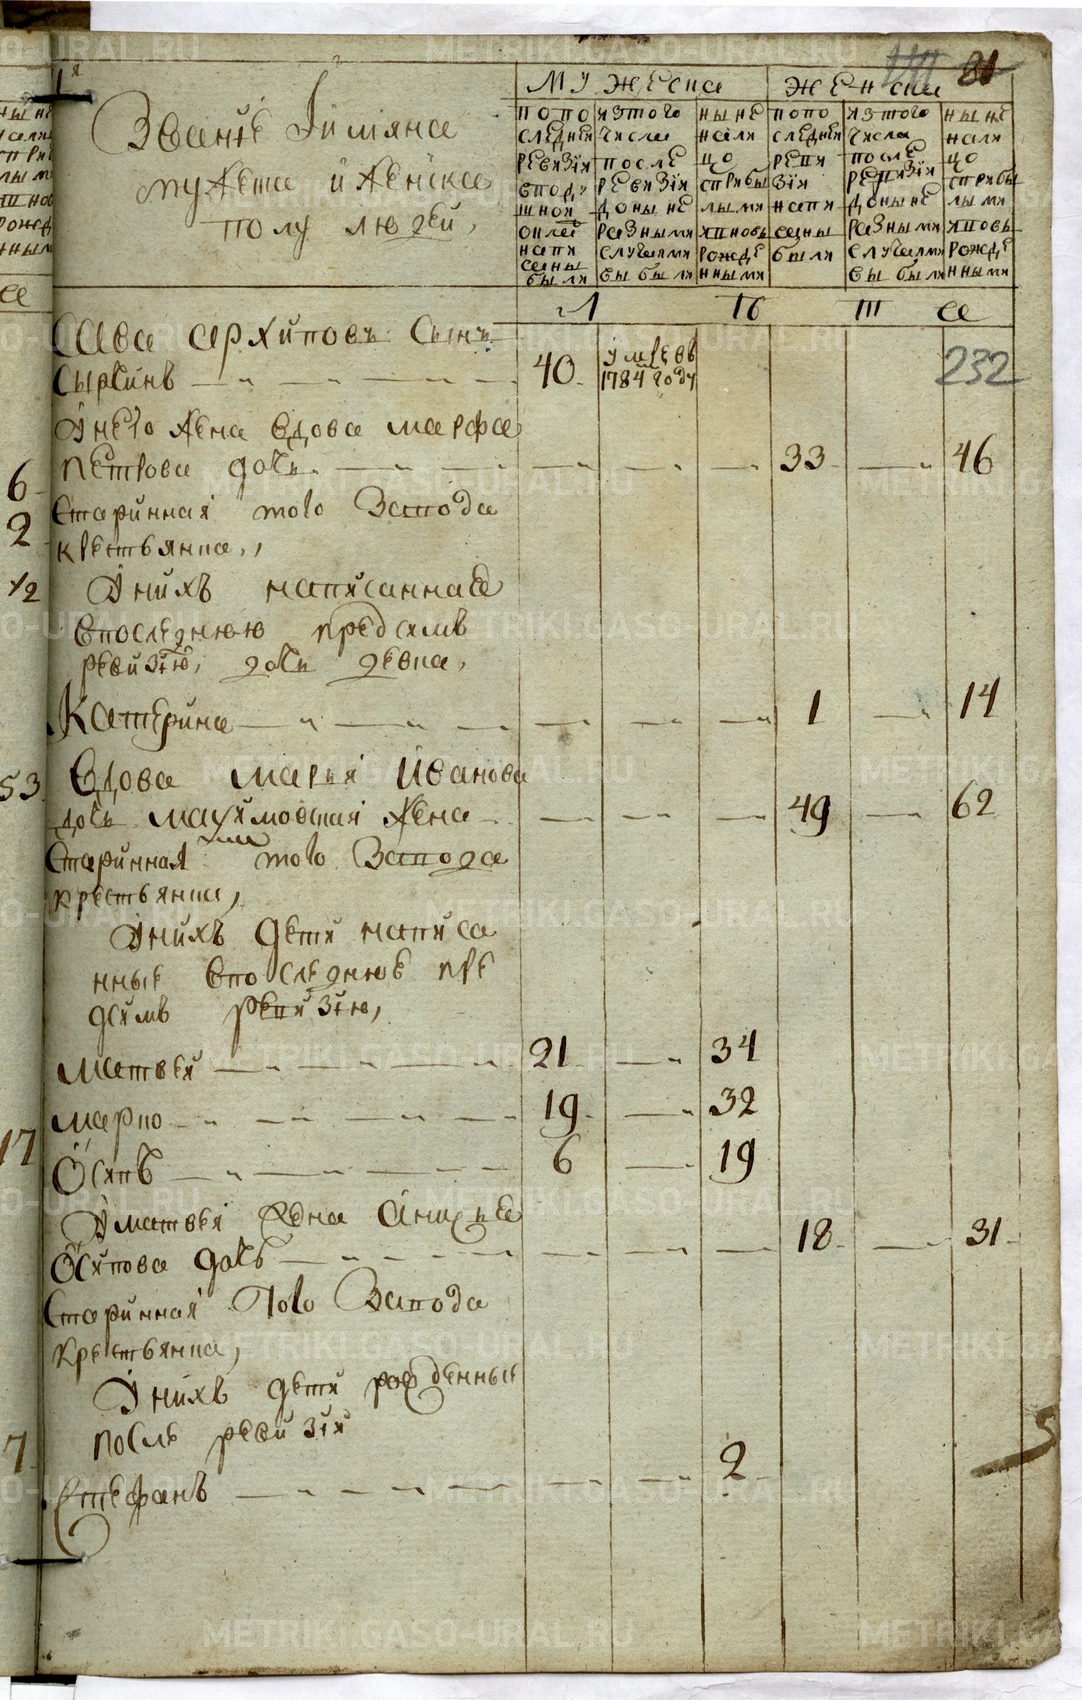 81
Званіе Іимяна
мужеска иженска
полу людей,
мужеска
женска
попо
следней
ревизїи
вподу
шной
онле
напи
саны
были
изтого
числа
после
ревизїи
доныне
разными
случаями
выбыли
ныне
нали
цо
сприбы
лыми
ипновь
рожде
нными
попо
следней
реви
зїи
напи
саны
были
изтого
числа
после
ревизїи
доныне
разными
случаями
выбыли
ныне
нали
цо
сприбы
лыми
ивновь
рожде
нными
Сава архиповъ сынъ
232
Сыркинъ 40 умревъ
1784 году
Унего жена вдова марфа
петрова дочь 33 46
Старинная того Завода
крестьянка,
Унихъ написанная
впоследнюю предсимъ
ревизїю, дочь девка,
Катерина 1 14
Вдова марья Иванова
дочь мақимовская жена 49 62
Старинная того Завода
крестьянка,
Унихъ дети написа
нные впоследнюю пре
дсимъ ревизїю,
матвей 21 34
марко 19 32
Осипъ 6 19
Уматвея жена
Осипова дочь 18 31
Старинная Того Завода
крестьянка,
Унихъ дети рожденные
после ревизїи
Стефанъ 2
6
2
1/2
53
17
7
METRIKI.GASO-URAL.RU